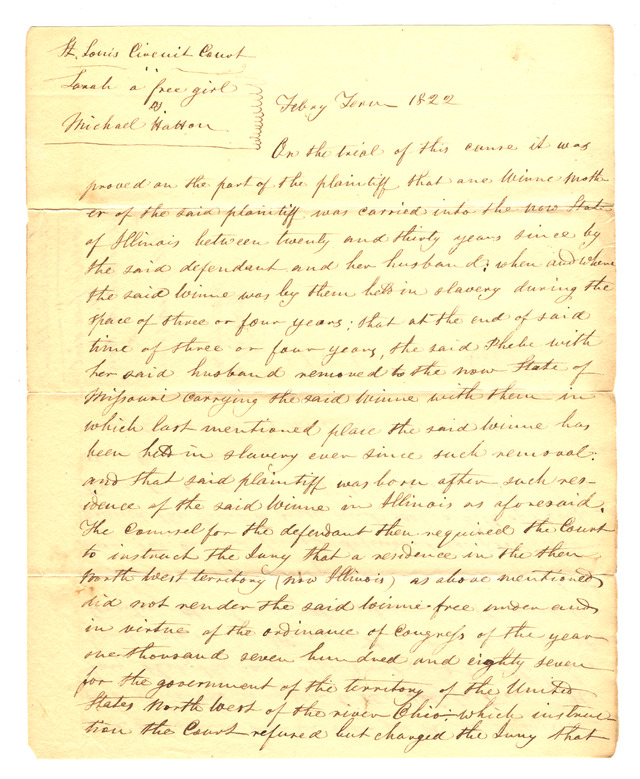 St. Louis Circuit Court
Sarah a free girl
vs.
Michael Hatton
Febry Term 1822
On the trial of this cause it was
proved on the part of the plaintiff that one Winne moth-
er of the said plaintiff was carried into the now State
of Illinois between twenty and thirty years since by
the said defendant and her husband; when and where
the said Winne was by them held in slavery during the
space of three or four years; that at the end of said
time of three or four years, the said Phebe with
her said husband removed to the now State of
Missouri carrying the said Winne with them in
which last mentioned place the said Winne has
been held in slavery ever since such removal:
and that said plaintiff was born after such res-
idence of the said Winne in Illinois as aforesaid.
The Counsel for the defendant then required the Court
to instruct the Jury that a residence in the then
North West territory (now Illinois) as above mentioned
did not render the said Winne free under and
in virtue of the ordinance of Congress of the year
one thousand seven hundred and eighty seven
for the government of the territory of the United
States North West of the river Ohio: which instruc-
tion the Court refused but charged the Jury that